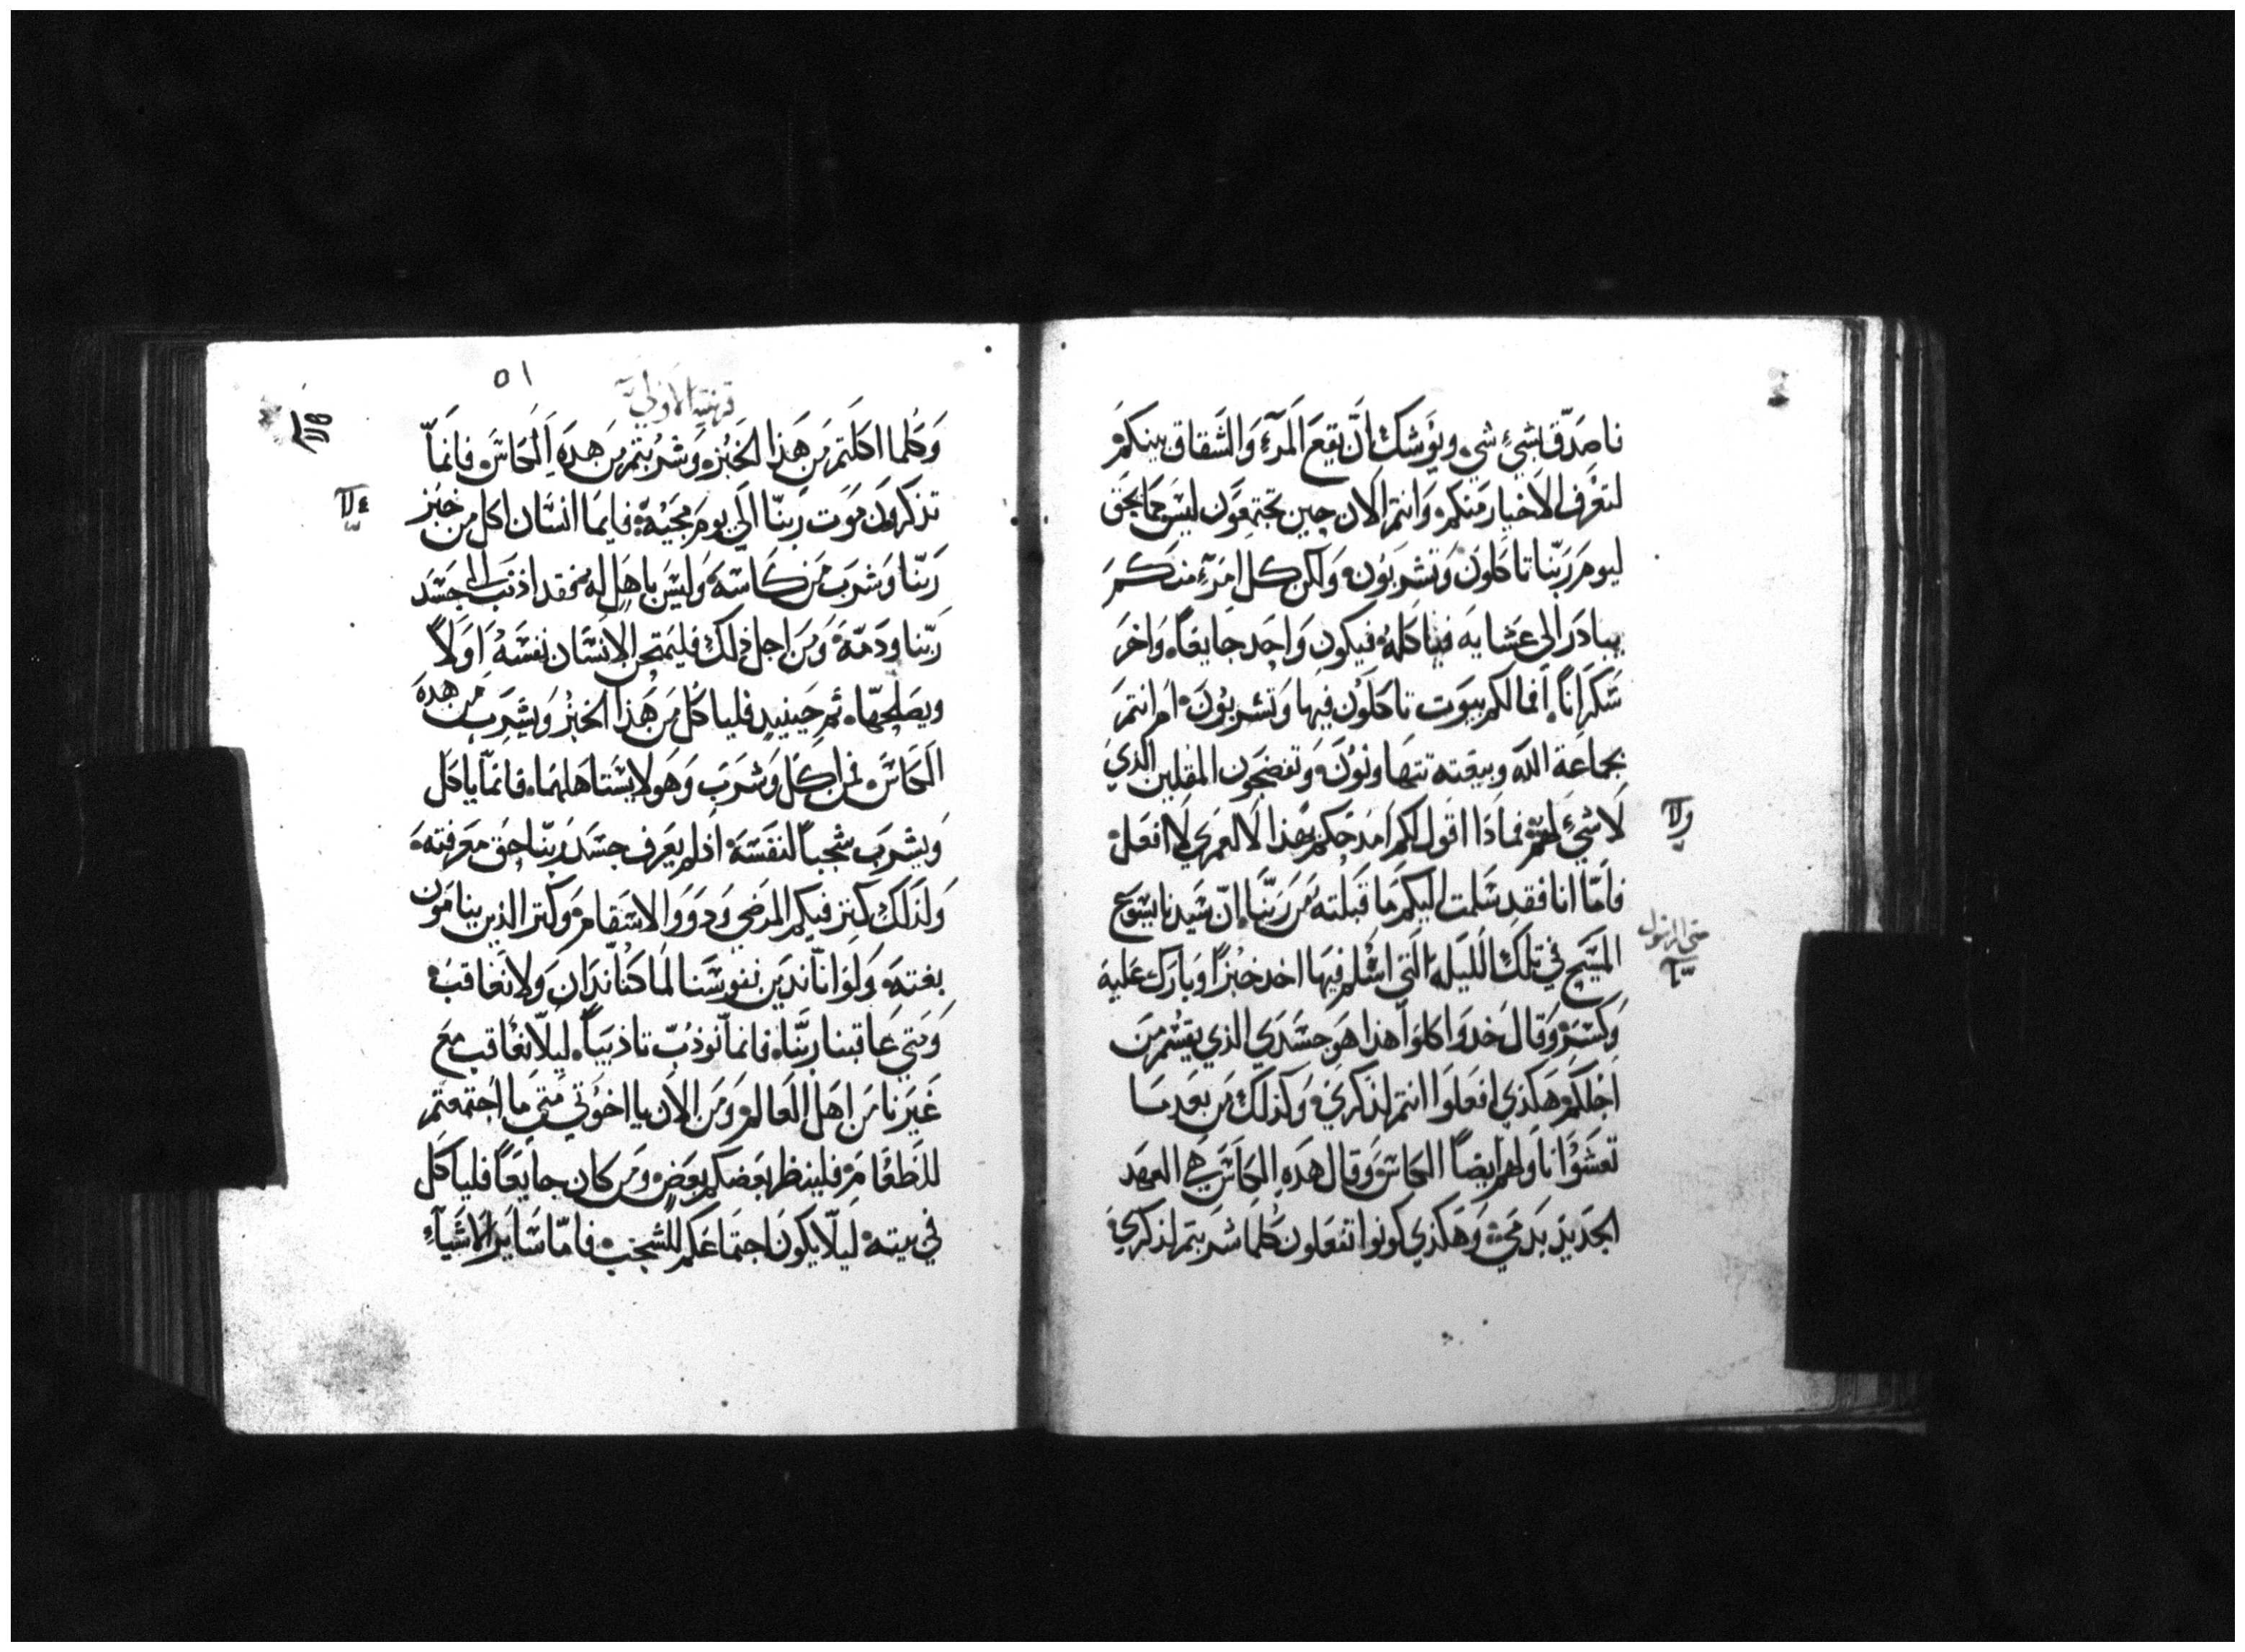 فاصدّق بشيءٍ شيء ويوشك انّ يقع المرآء والشقاق بينكم
لتعرف الاخيار منكم وانتم الان حين تجتمعون ليس كما يحق
ليوم ربّنا تاكلون وتشربون ولكن كل امرءٍ منكم
يبادر الي عشايه فياكله فيكون واحد جايعاً واخر
سكراناً افما لكم بيوت تاكلون فيها وتشربون ام انتم
بجماعة الله وبيعته تتهاونون وتفضحون المقلين الذي
لا شيء لهم فماذا اقول لكم امدحكم بهذا لا لعمري لا افعل
فامّا انا فقد سلمت اليكم ما قبلته من ربّنا انّ سيدنا يسوع
المسيح في تلك الليله التي اسلم فيها اخد خبزاً وبارك عليه
وكسره وقال خدوا كلوا هذا هو جسدي الذي يقسم من
اجلكم هكذي افعلوا انتم لذكري وكذلك من بعد ما
تعشوا ناولهم ايضاً الكاس وقال هده الكاس هي العهد
الجديد بدمي وهكذي كونوا تفعلون كلما شربتم لذكري
ولا
متي الرسول
٥١
قرنتيه الاولي
وكلما اكلتم من هذا الخبز وشربتم من هده الكاس فانمّا
تذكرون موت ربنّا الي يوم مجيه فايما انسان اكل من خبز
ربّنا وشرب من كاسه وليس باهل له فقد اذنب الي جسد
ربّنا ودمه ومن اجل ذلك فليمتحن الانسان نفسه اولاً
ويصلحها ثم حينيد فلياكل من هذا الخبز ويشرب من هده
الكاس فمن اكل وشرب وهو لا يستاهلهما فانمّا ياكل
ويشرب شجباً لنفسه اذ لم يعرف جسد ربّنا حق معرفته
ولذلك كتر فيكم المرضي ودوو الاسقام وكتر الذين ينامون
بغته ولو انّا ندين نفوسنا لما كنّا ندان ولا نعاقب
ومتي عاقبنا ربنّا فانمّا نوذبّ تاذيباً ليلّا نعاقب مع
غيرنا من اهل العالم ومن الان يا اخوتي متي ما اجتمعتم
للطعام فلينظر بعضكم بعض ومن كان جايعاً فلياكل
في بيته ليلّا يكون اجتماعكم للشجب فامّا ساير الاشيآء